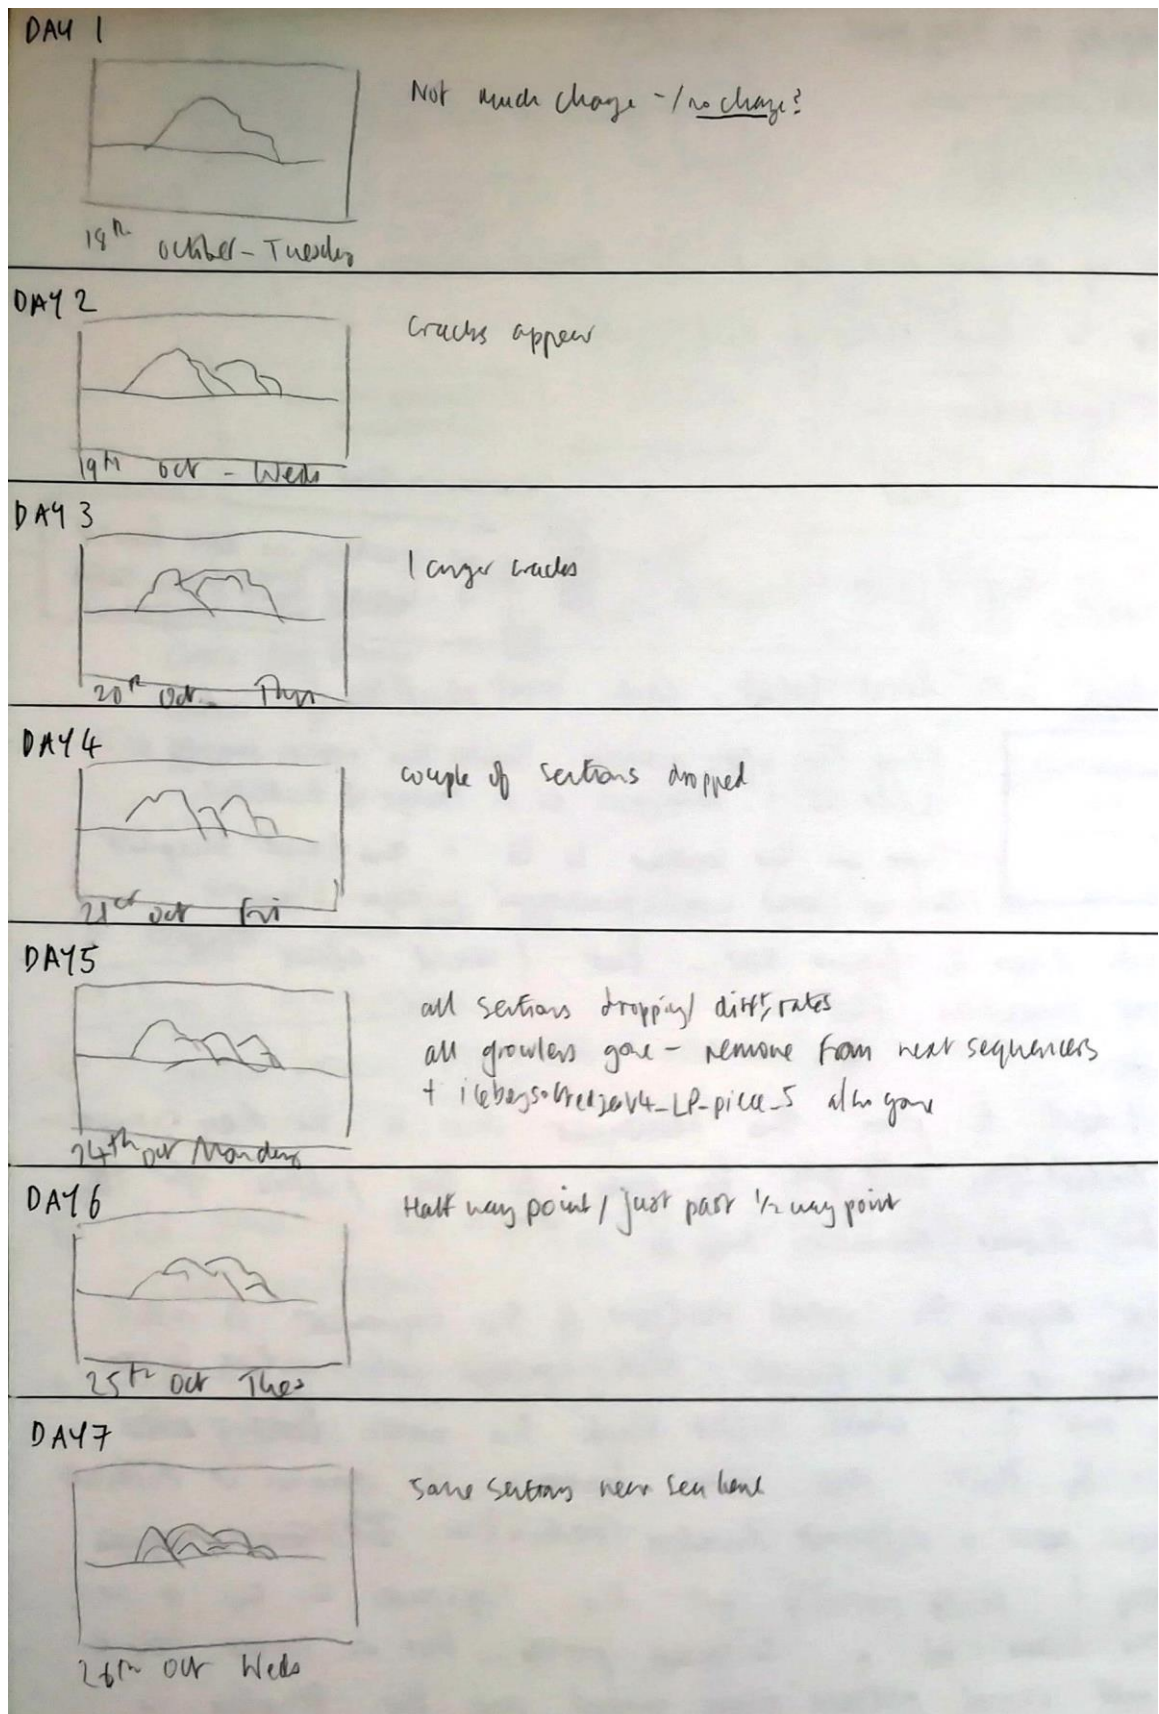 DAY 1
Not much change - / no change?
18th October - Tuesday
DAY 2
Cracks appear
19th Oct - Weds
DAY 3
larger cracks
20th Oct - Thurs
DAY 4
couple of sections dropped
21st Oct Fri
DAY 5
all sections dropping/ diff, rates
all growlers gone - remove from next sequences
+ _LP_piece_5 also gone
24th Oct Monday
DAY 6
Half way point / just past 1/2 way point
25th Oct Tues
DAY 7
Some sections near sea level
26th Oct Weds